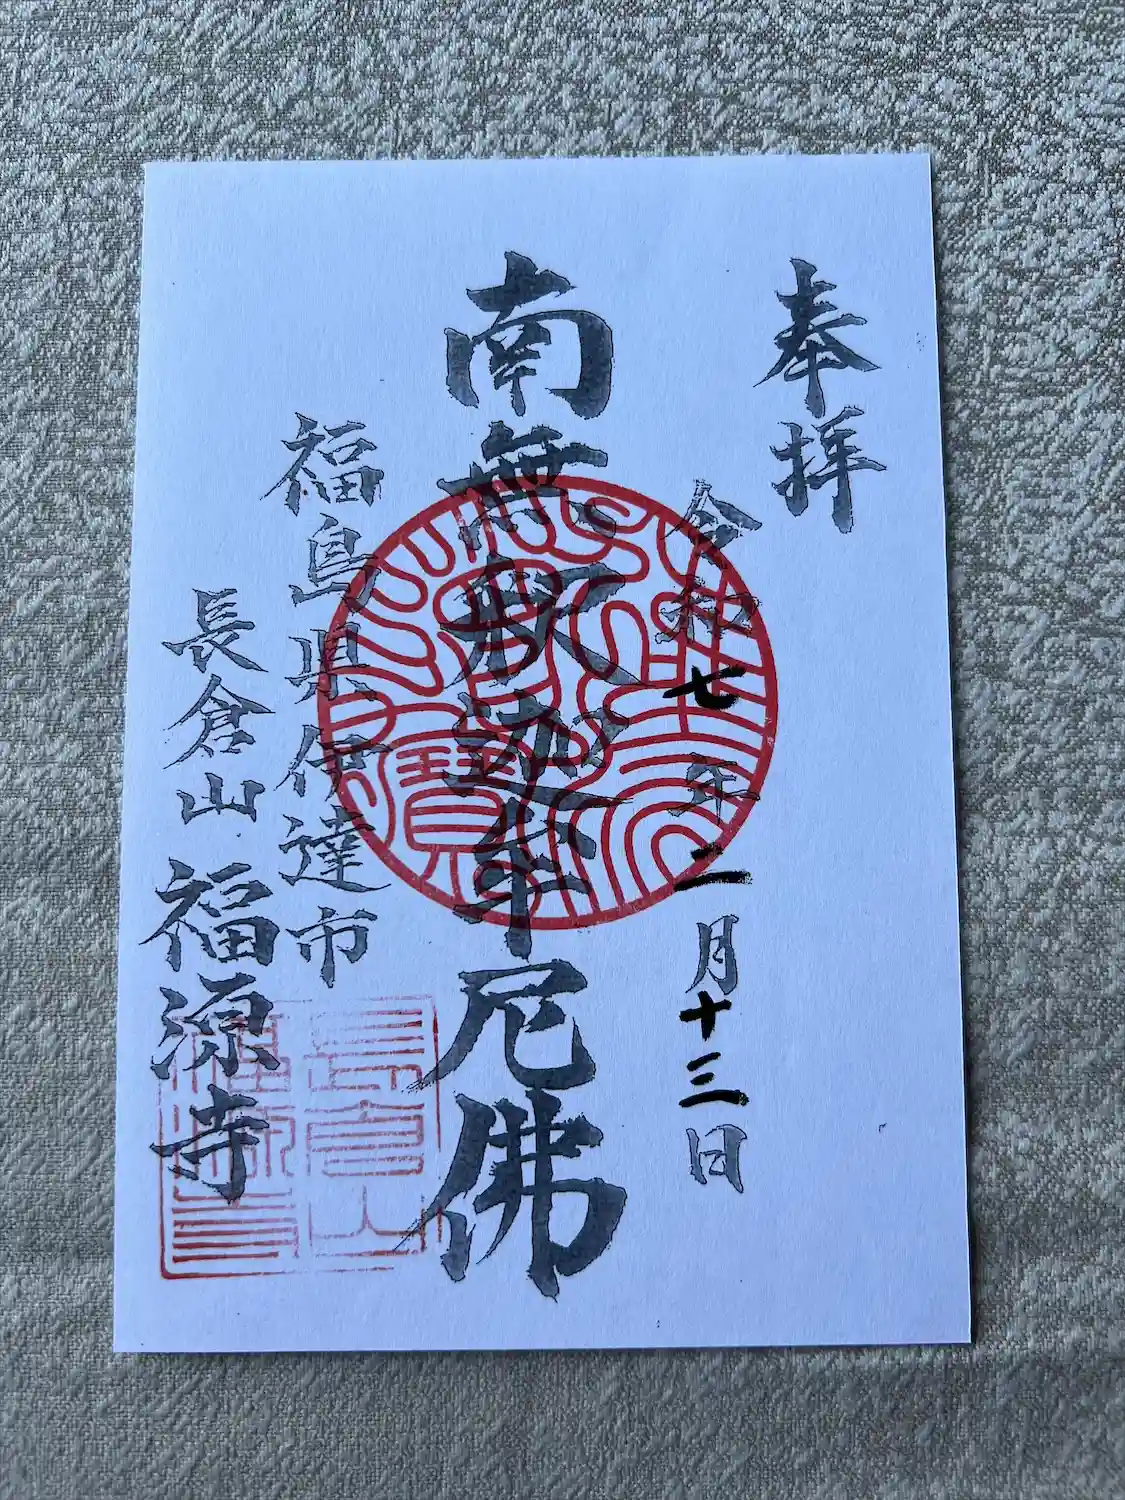 奉拝
令和七年二月十三日
南無釈迦牟尼佛
福島県伊達市
長倉山 福源寺
寶
長倉山
福源寺